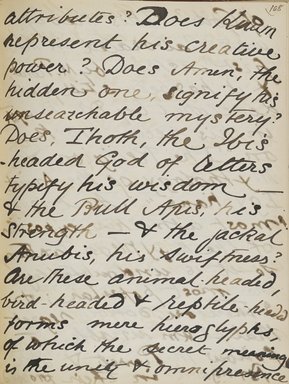 108
attributes? Does Knum
represent his creative
power? Does Amen, the
hidden one, signify his
unsearchable mystery?
Does, Thoth, the Ibis
-headed God of letters
typify his wisdom —
& the Bull Apis, his
strength — & the jackal
Anubis, his swiftness?
Are these animal-headed,
bird-headed & reptile headed
forms mere hieroglyphs,
of which the secret meaning
is the unity & omnipresence